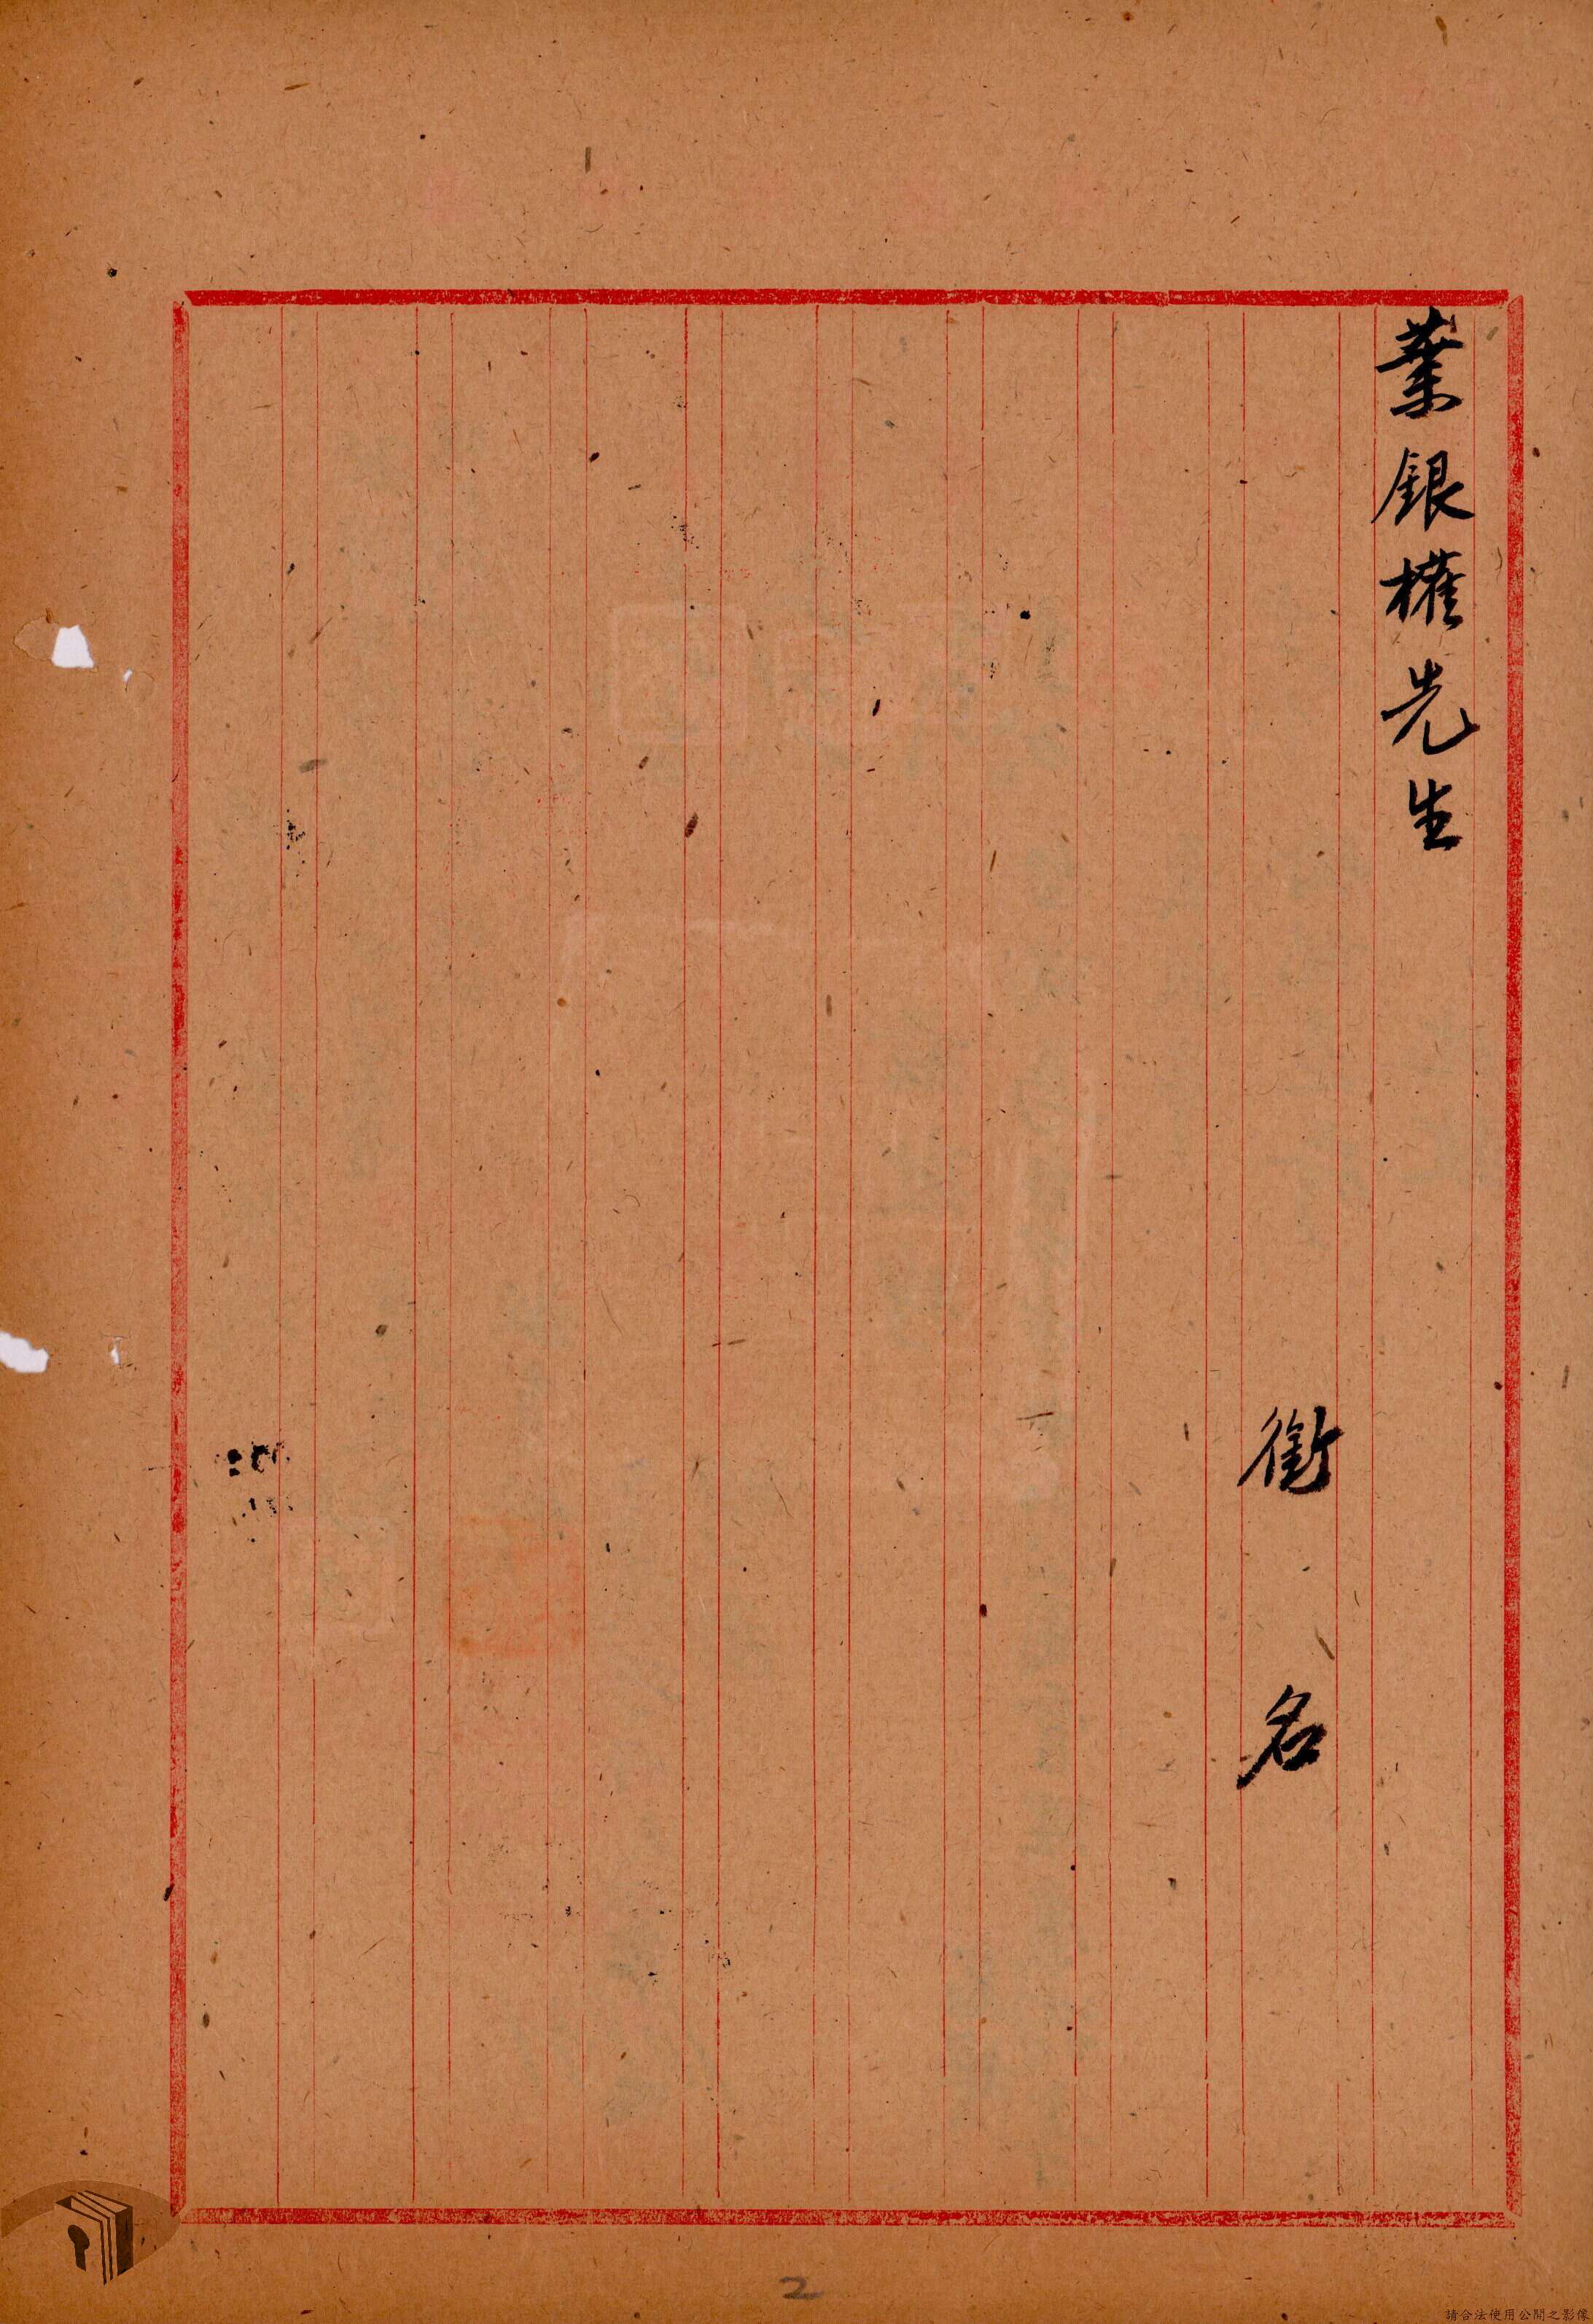 葉銀權先生
銜名
2
請合法使用公開之影像